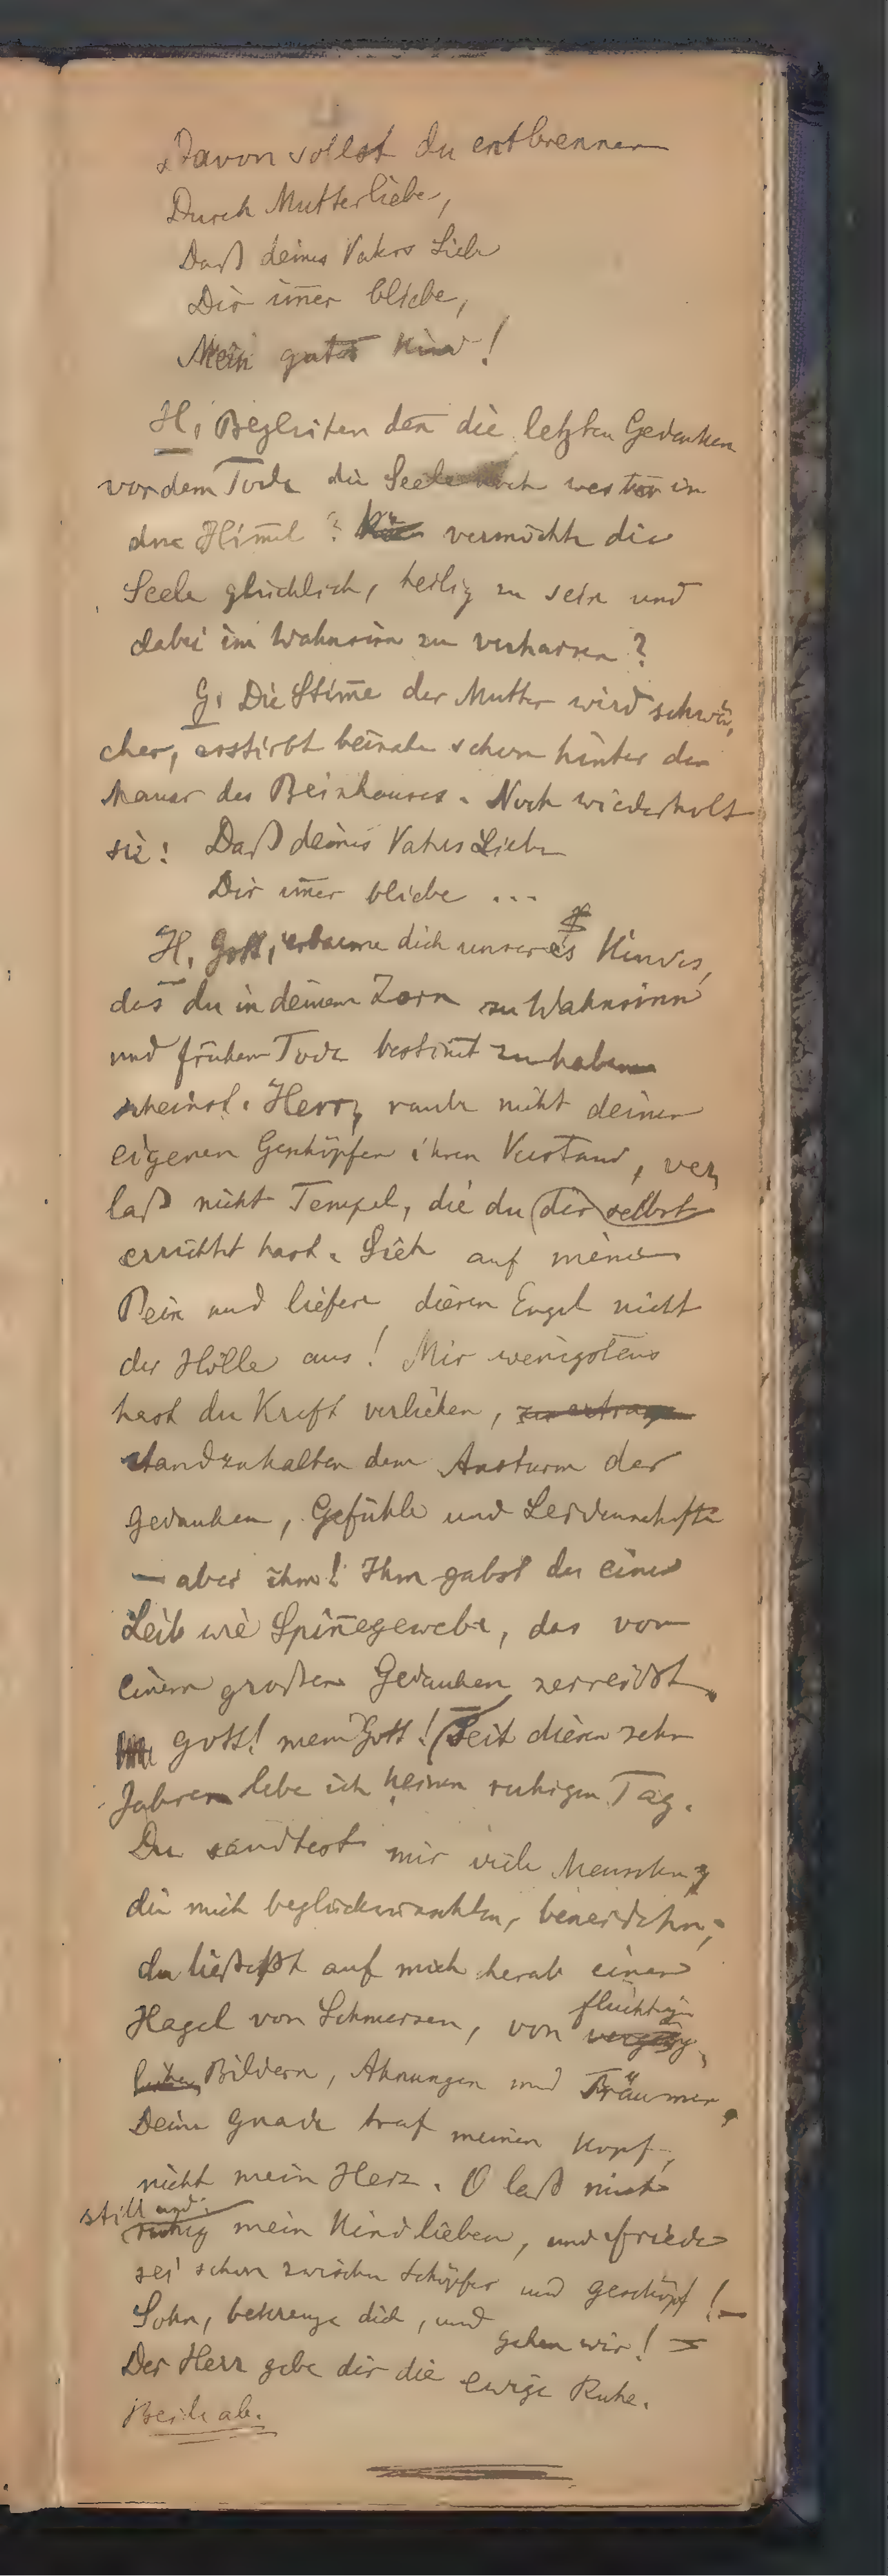 Davon sollst du entbrennen
Durch Mutterliebe,
Daß deines Vaters Liebe
Dir im̄er bliebe,
Mein gutes Kind!
H. Begleiten den̄ die letzten Gedanken
vor dem Tode die Seele noch weiter in
den Him̄el? vermöchte die
Seele glücklich, heilig zu sein und
dabei im Wahnsinn zu verharren?
G. Die Stim̄e der Mutter wird schwä,
cher, erstirbt beinahe schon hinter der
Mauer des Beinhauses. Noch wiederholt
sie: Daß deines Vaters Liebe
Dir im̄er bliebe ...
H. Gott, erbarme dich unseres Kindes,
das du in deinem Zorn zu Wahnsinn
und frühem Tode bestim̄t zu haben
scheinst. Herr, raube nicht deinen
eigenen Geschöpfen ihren Verstand, ver,
laß nicht Tempel, die du dir selbst
errichtet hast. Sieh auf meine
Pein und liefere diesen Engel nicht
der Hölle aus! Mir wenigstens
hast du Kraft verliehen, zu ertragen
standzuhalten dem Ansturm der
Gedanken, Gefühle und Leidenschaften
— aber ihm! Ihm gabst du einen
Leib wie Spin̄egewebe, das von
einem großen Gedanken zerreißt.
Gott! mein Gott! Seit diesen zehn
Jahren lebe ich keinen ruhigen Tag.
Du sandtest mir viele Menschen,
die mich beglückwünschten, beneideten;
du ließest auf mich herab einen
Hagel von Schmerzen, von
flüchtigen
Bildern, Ahnungen und Träumen.
Deine Gnade traf meinen Kopf,
nicht mein Herz. O laß mich
still und
ruhig mein Kind lieben, und Friede
sei schon zwischen Schöpfer und Geschöpf! —
Sohn, bekreuze dich, und gehen wir! —
Der Herr gebe dir die ewige Ruhe.
Beide ab.